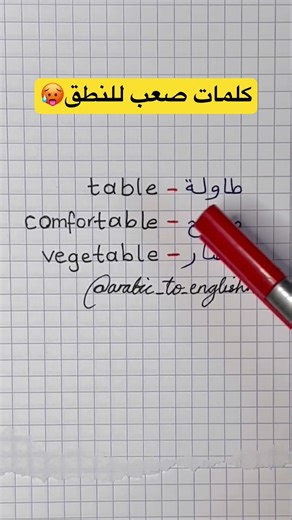 كلمات صعب للنطق🥵
table - طاولة
comfortable -
vegetable -
@arabic_to_english